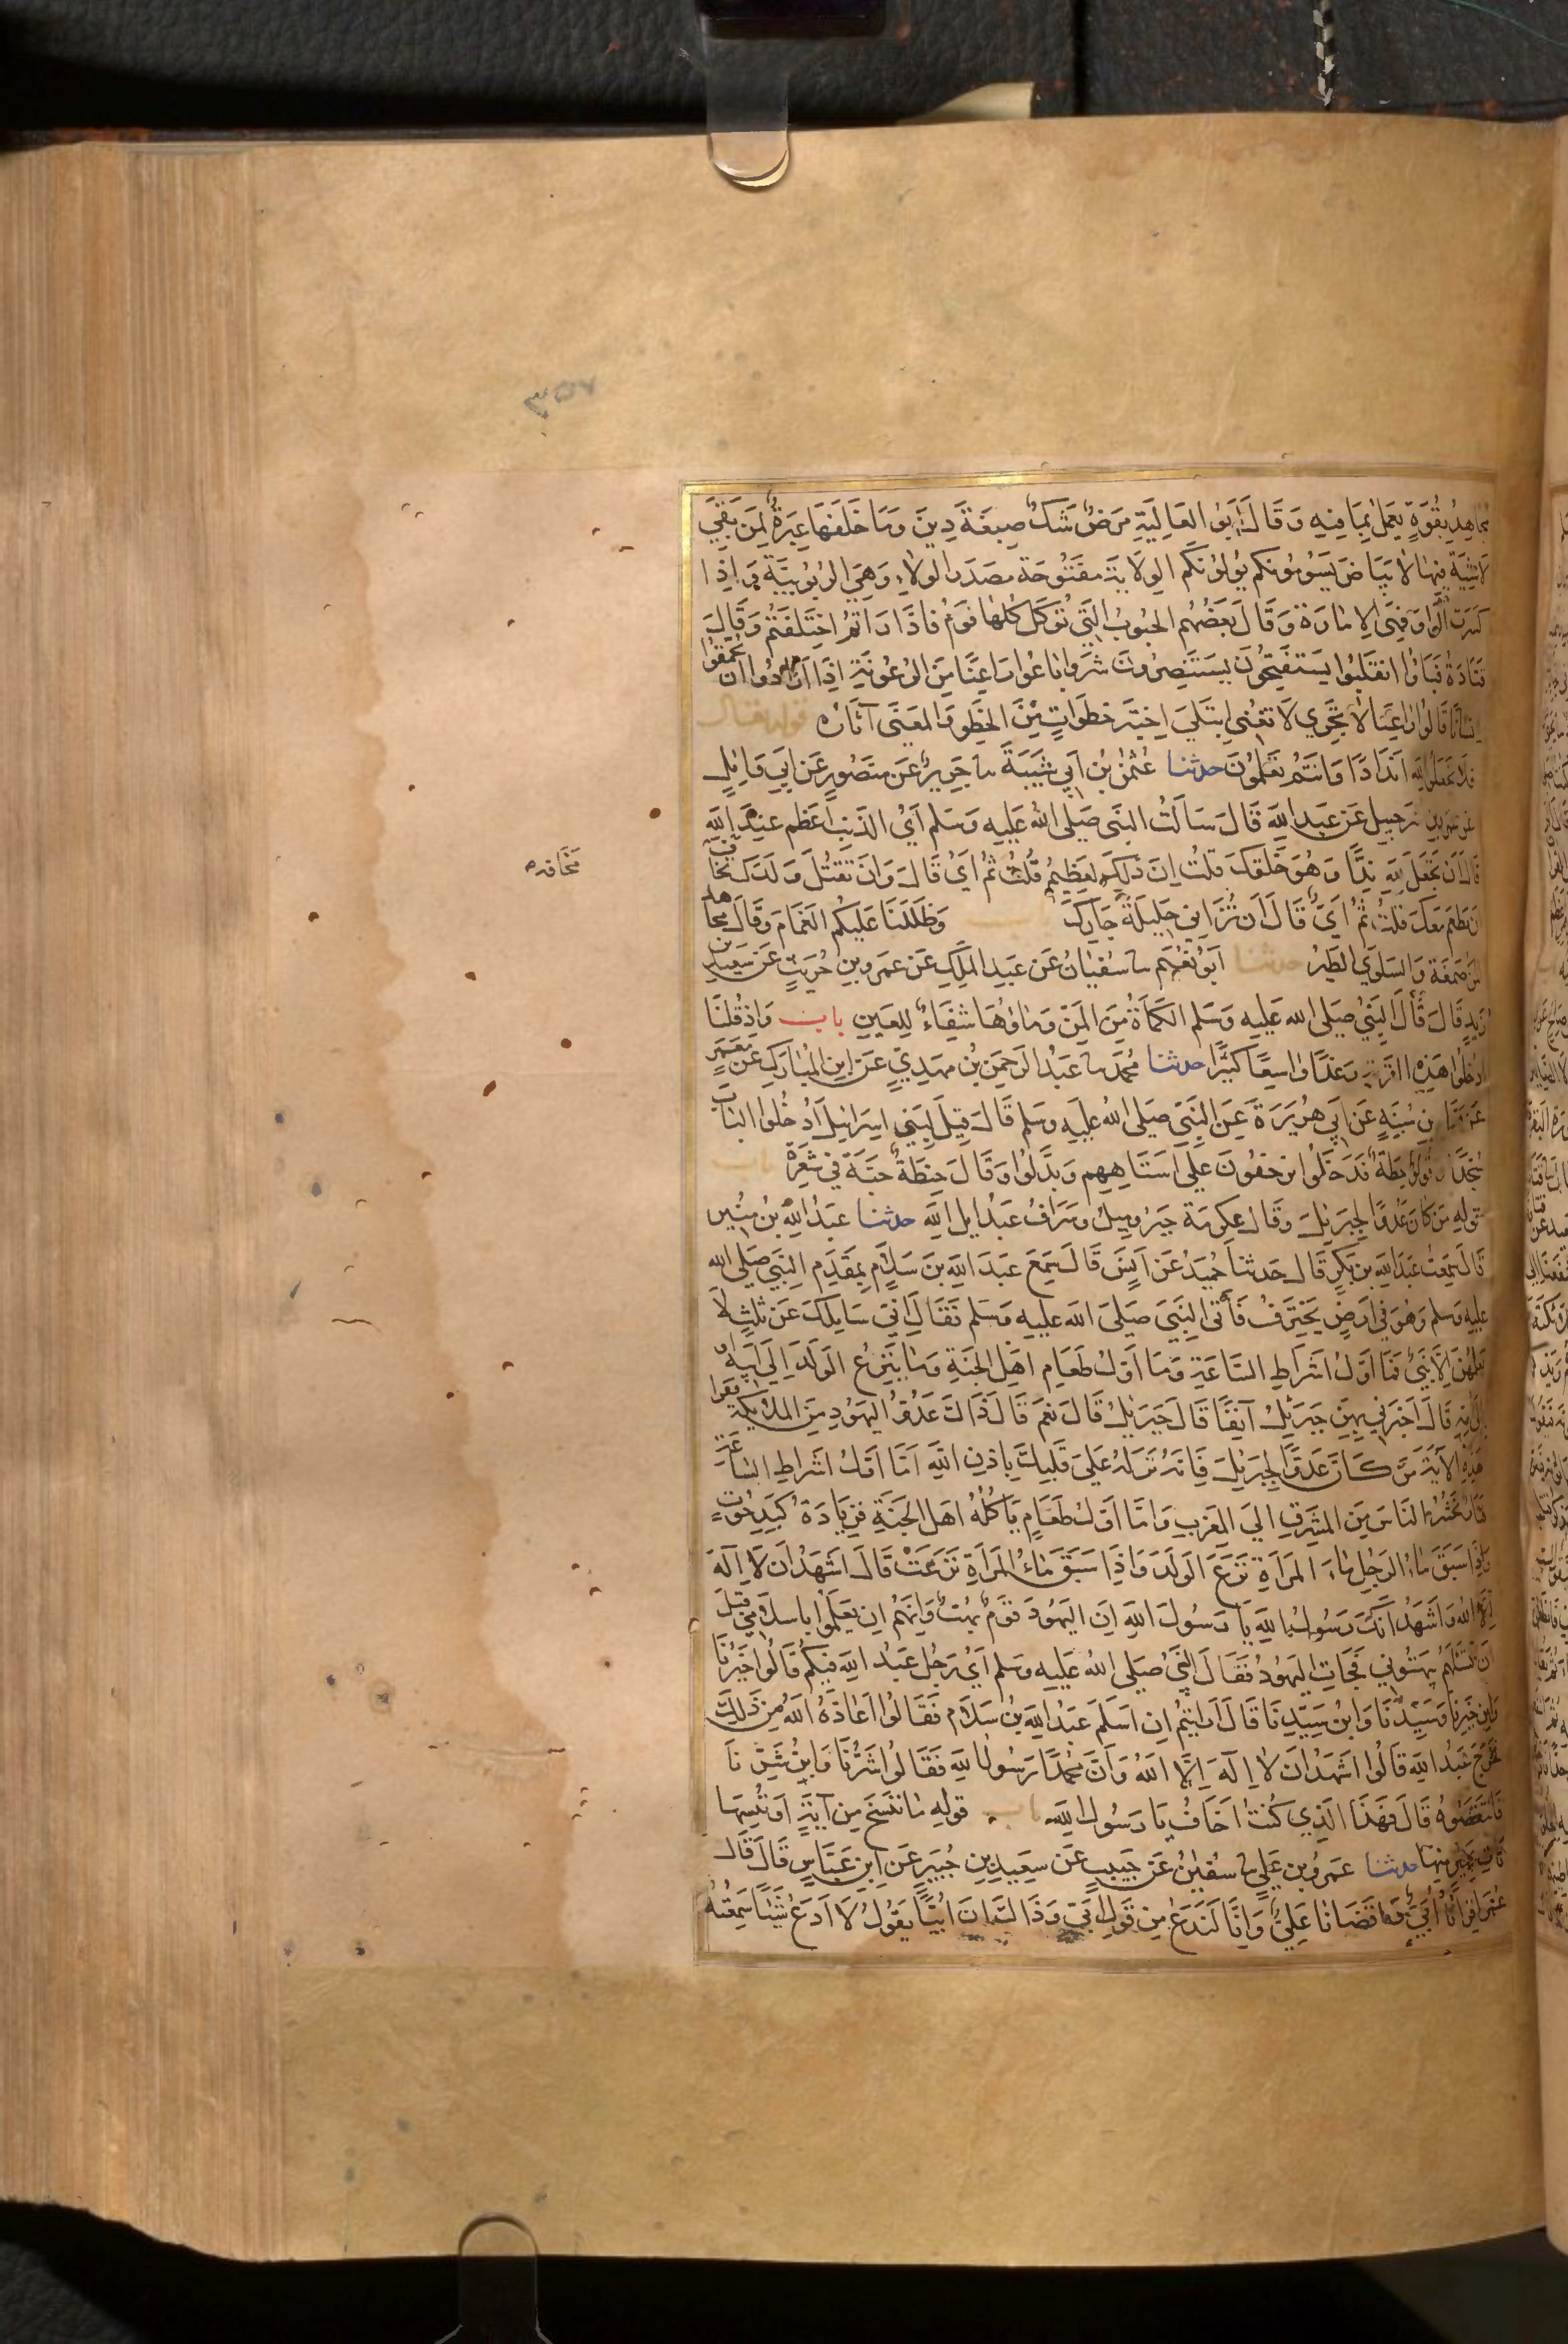 ٣٥٧
مجاهد بقوة يعمل بما فيه وقال ابو العالية مرض شك صبغة دين وما خلفها عبرة لمن بقي
لا شية فيها لا بياض يسومونكم يولونكم الولاية مفتوحة مصدر الولاء وهي الربوبية واذا
كسرت الواو فهي الامارة وقال بعضهم الحبوب التي توكل كلها فوم فاذا راتم اختلفتم وقال
قتادة فباؤا انقلبوا يستفتحون يستنصرون شروا باعوا راعنا من الرعونة اذا ارادوا ان يحمقوا
انسانا قالوا راعنا لا تجزي لا تغني ابتلي اختبر خطوات من الخطو والمعنى آثاره قوله تعالى
فلا تجعلوا لله اندادا وانتم تعلمون حدثنا عثمن بن ابي شيبة نا جرير عن منصور عن ابي وايل
عن عمرو بن شرحبيل عن عبد الله قال سالت النبي صلى الله عليه وسلم اي الذنب اعظم عند الله
قال ان تجعل لله ندا وهو خلقك قلت ان ذلك لعظيم قلت ثم اي قال وان تقتل ولدك تخاف
ان يطعم معك قلت ثم اي قال ان تزاني حليلة جارك وظللنا عليكم الغمام وقال مجاهد
المن صمغة والسلوي الطير حدثنا ابو نعيم نا سفيان عن عبد الملك عن عمرو بن حريث عن سعيد بن
زيد قال قال النبي صلى الله عليه وسلم الكمأة من المن وماوها شفاء للعين باب واذ قلنا
ادخلوا هذه القرية رغدا واسعا كثيرا حدثنا محمد نا عبد الرحمن بن مهدي عن ابن المبارك عن معمر
عن همام بن منبه عن ابي هريرة عن النبي صلى الله عليه وسلم قال قيل لبني اسرائيل ادخلوا الباب
سجدا وقولوا حطة فدخلوا يزحفون على استاههم وبدلوا وقال حنطة حبة في شعرة باب
قوله من كان عدوا لجبريل وقال عكرمة جبر وميك وسراف عبد ايل الله حدثنا عبد الله بن منير
قال سمعت عبد الله بن بكر قال حدثنا حميد عن انس قال سمع عبد الله بن سلام بمقدم النبي صلى الله
عليه وسلم وهو في ارض يخترف فأتى النبي صلى الله عليه وسلم فقال اني سايلك عن ثلث لا
يعلمهن الا نبي فما اول اشراط الساعة وما اول طعام اهل الجنة وما ينزع الولد الى ابيه او
الى امه قال اخبرني بهن جبرئل آنفا قال جبريل قال نعم قال ذاك عدو اليهود من الملايكة فقرا
هذه الآية من كان عدوا لجبريل فانه نزله على قلبك باذن الله اما اول اشراط الساعة
فنار تحشر الناس من المشرق الي المغرب واما اول طعام ياكله اهل الجنة فزيادة كبد حوت
واذا سبق ماء الرجل ماء المراة نزع الولد واذا سبق ماء المراة نزعت قال اشهد ان لا اله
الا الله واشهد انك رسول الله يا رسول الله ان اليهود قوم بهت وانهم ان يعلموا باسلامي قبل
ان تسئلهم بهتوني فجات اليهود فقال النبي صلى الله عليه وسلم اي رجل عبد الله فيكم قالوا خيرنا
وابن خيرنا وسيدنا وابن سيدنا قال ارايتم ان اسلم عبد الله بن سلام فقالوا اعاذه الله من ذلك
فخرج عبد الله قالوا اشهد ان لا اله الا الله وان محمدا رسول الله فقالوا اشرنا وابن شرنا
فانتقصوه قال فهذا الذي كنت اخاف يا رسول الله باب قوله ما ننسخ من آية او ننسها
نات بخير منها حدثنا عمرو بن علي نا سفين عن حبيب عن سعيد بن جبير عن ابن عباس قال قال
عمر اقرانا أبي واقضانا علي وانا لندع من قول ابي وذاك ان ابيا يقول لا ادع شيئا سمعته
مخافة